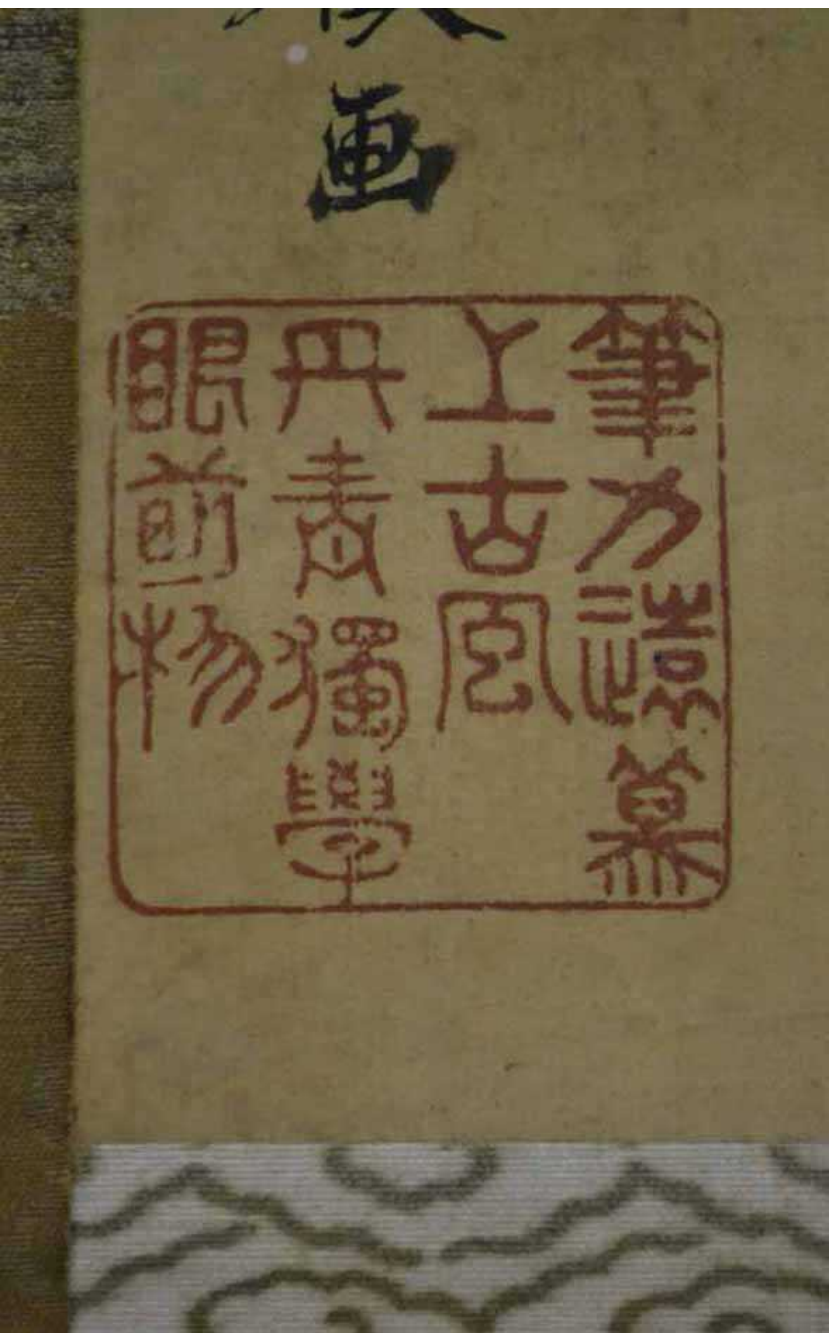 画
筆力遠慕
上古風
丹青獨學
眼前物